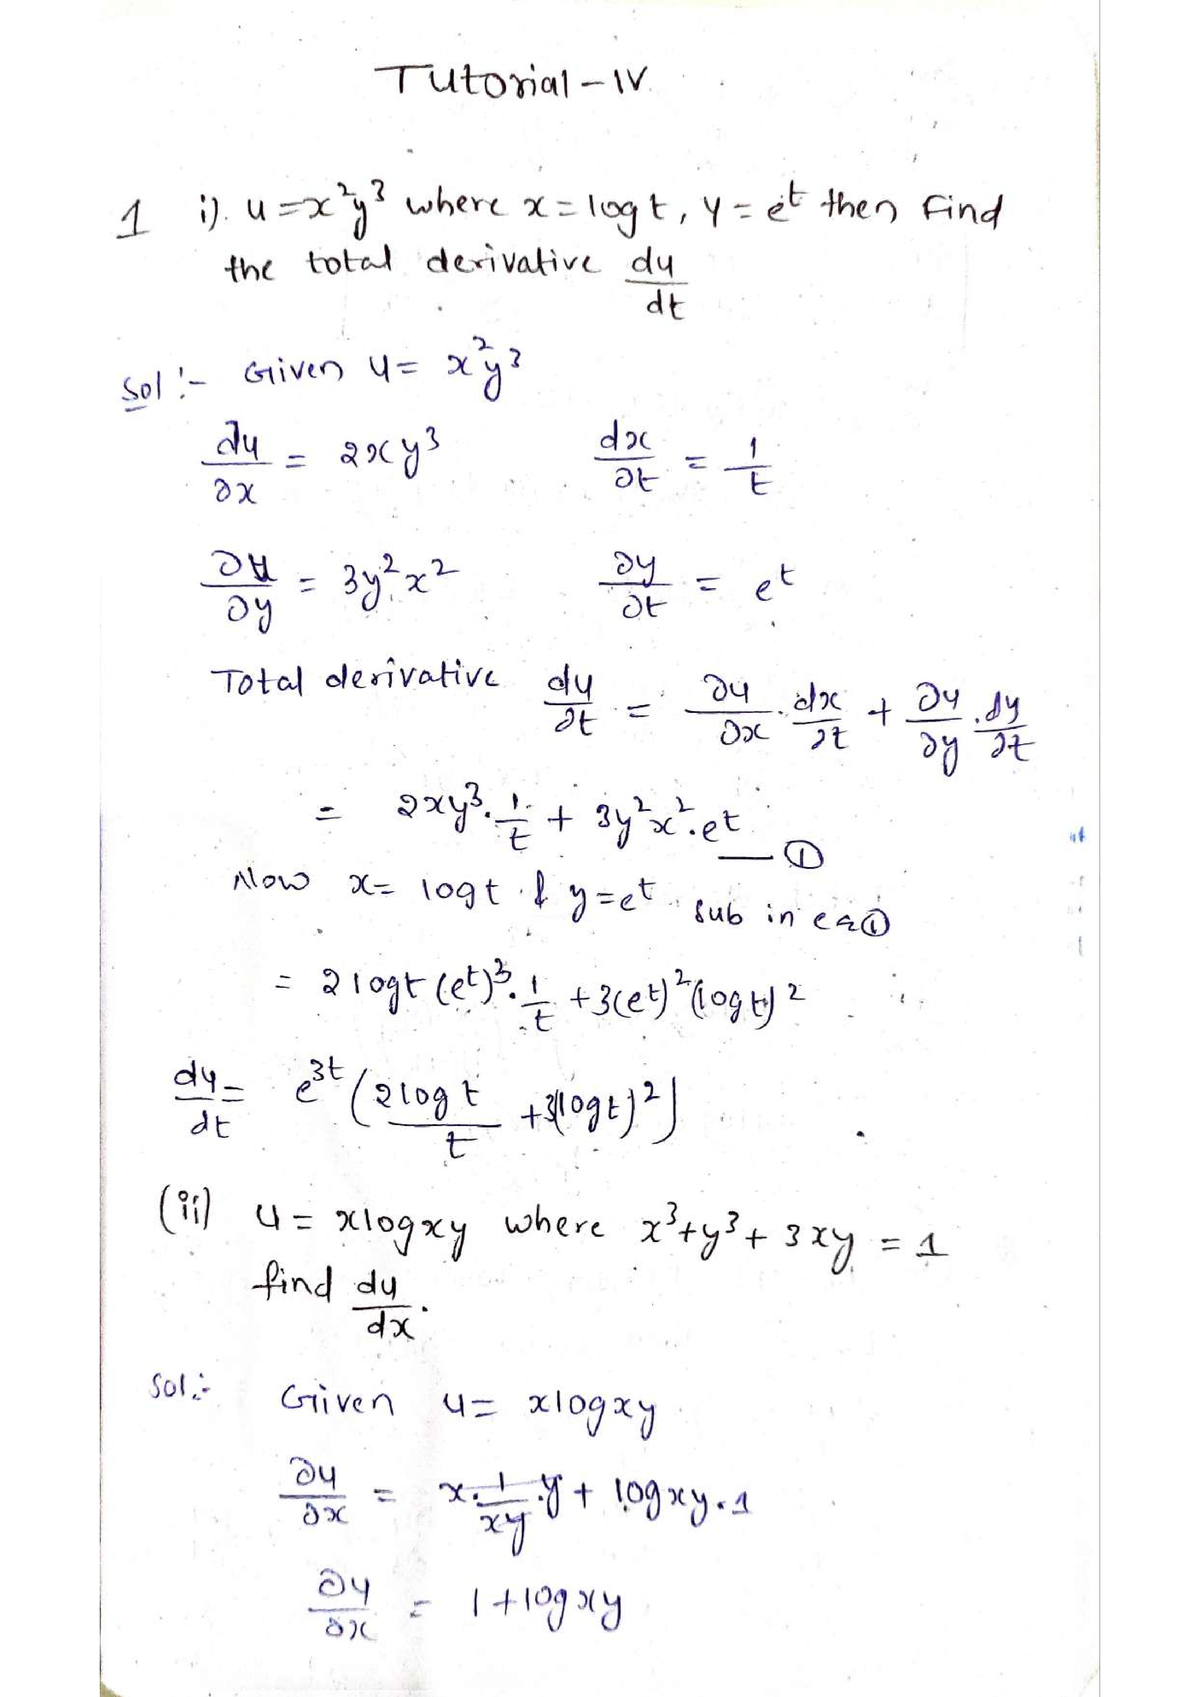 Tutorial-IV
1 i). u=x²y³ where x=logt, y=e^t then find
the total derivative du/dt
Sol:- Given u= x²y³
∂u/∂x = 2xy³ dx/∂t = 1/t
∂u/∂y = 3y²x² ∂y/∂t = e^t
Total derivative du/∂t = ∂u/∂x . dx/∂t + ∂u/∂y . dy/∂t
= 2xy³. 1/t + 3y²x².e^t — ①
Now x= logt & y=e^t sub in eq①
= 2logt(e^t)³. 1/t +3(e^t)²(logt)²
du/dt = e^3t (2logt/t +3(logt)²)
(ii) u= xlogxy where x³+y³+3xy = 1
find du/dx.
Sol:- Given u= xlogxy
∂u/∂x = x. 1/xy .y + logxy.1
∂u/∂x = 1+logxy